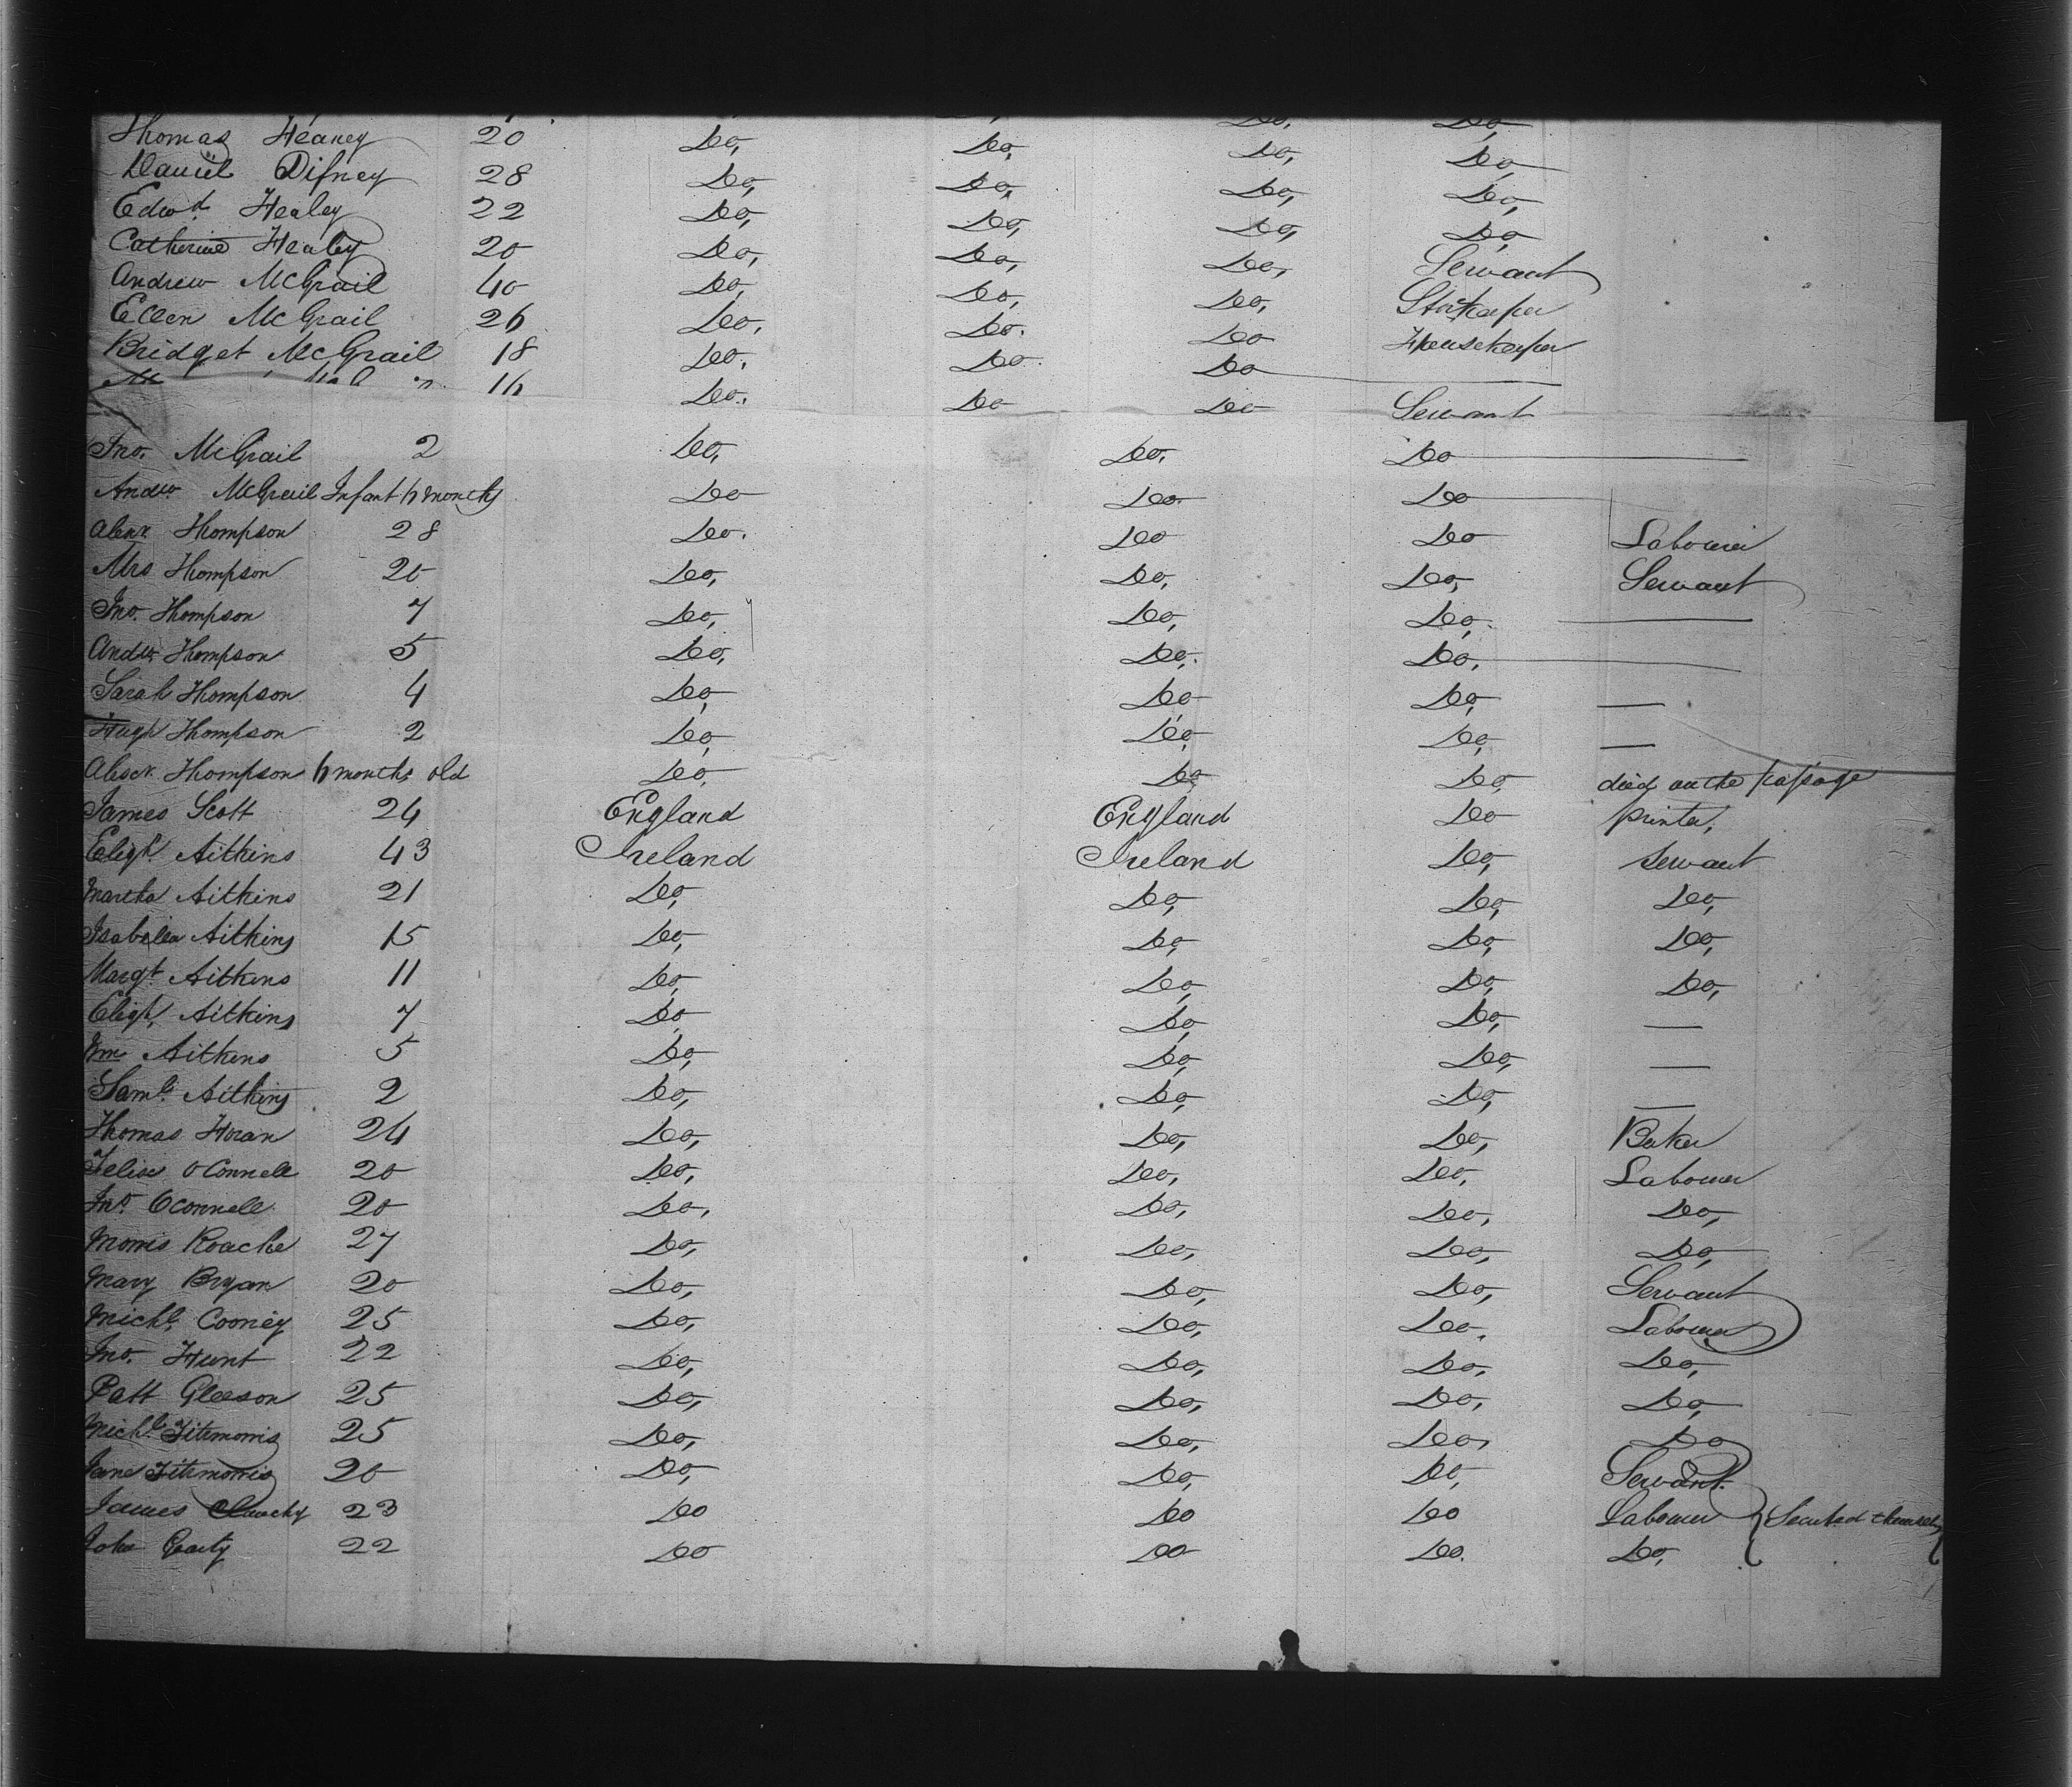 Do, Do,
Thomas Heaney 20 Do, Do, Do, Do,
Daniel Difney 28 Do, Do, Do, Do,
Edwd. Healey 22 Do, Do, Do, Do,
Catherine Healey 20 Do, Do, Do, Servant
Andrew McGrail 40 Do, Do, Do, Storkeeper
Ellen McGrail 26 Do, Do. Do Housekeeper
Bridget McGrail 18 Do. Do. Do
16 Do. Do Do Servant
Jno. McGrail 2 Do, Do. Do
Andw McGrail Infant 6 months Do Do. Do
Alexr. Thompson 28 Do. Do Do Labourer
Mrs Thompson 20 Do, Do, Do, Servant
Jno. Thompson 7 Do, Do, Do,
Andw Thompson 5 Do, Do, Do,
Sarah Thompson 4 Do, Do Do,
Hugh Thompson 2 Do, Do, Do,
Alexr. Thompson 6 months old Do, Do Do, died on the passage
James Scott 24 England England Do printer,
Elizh. Aitkins 43 Ireland Ireland Do, Servant
Martha Aitkins 21 Do, Do, Do, Do,
Isabella Aitkins 15 Do, Do, Do, Do,
Margt. Aitkins 11 Do, Do, Do, Do,
Elizh. Aitkins 7 Do Do, Do,
Wm Aitkins 5 Do, Do, Do,
Saml. Aitkins 2 Do, Do, Do,
Thomas Horan 24 Do, Do, Do, Baker
O Connell 20 Do, Do, Do, Labourer
Jno. O Connell 20 Do, Do, Do, Do,
Morris Roache 27 Do, Do, Do, Do,
Mary Bryan 20 Do, Do, Do, Servant
Michl. Cooney 25 Do, Do, Do. Labourer
Jno. Hunt 22 Do, Do, Do, Do,
Patt Gleeson 25 Do, Do, Do, Do,
Michl. Fitzmorris 25 Do, Do, Do, Do
Jane Fitzmorris 20 Do, Do, Do, Servant.
James 23 Do Do Do Labourer
John 22 Do Do Do. Do,